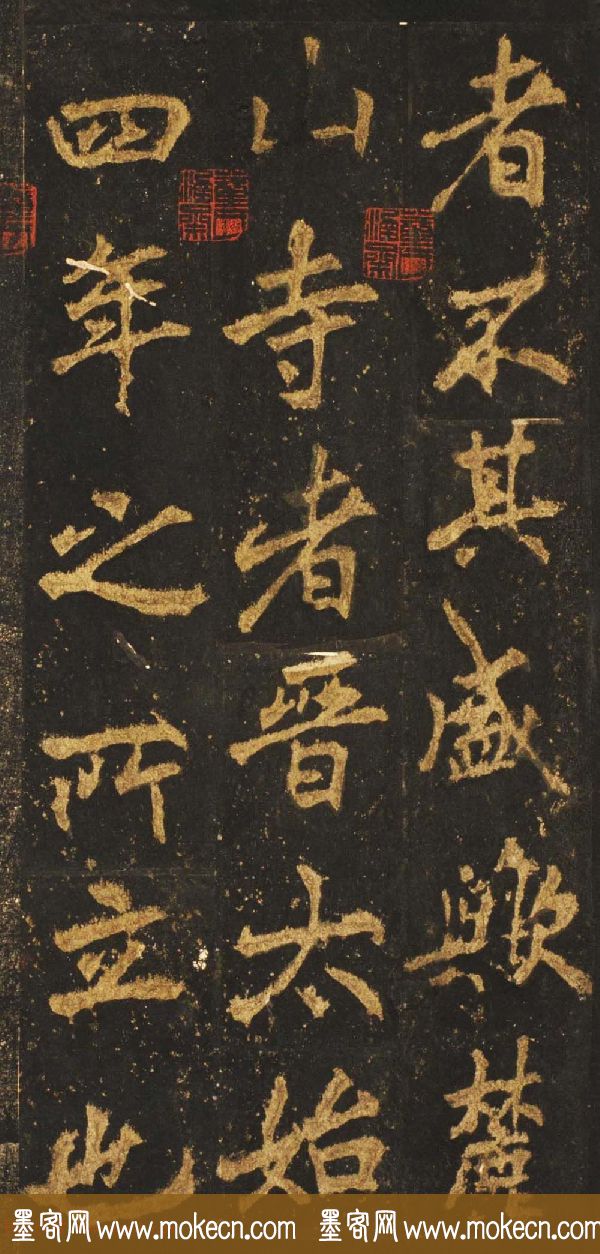 者不其盛歟麓
山寺者晉太始
四年之所立也
墨客网 www.mokecn.com 墨客网 www.mokecn.com